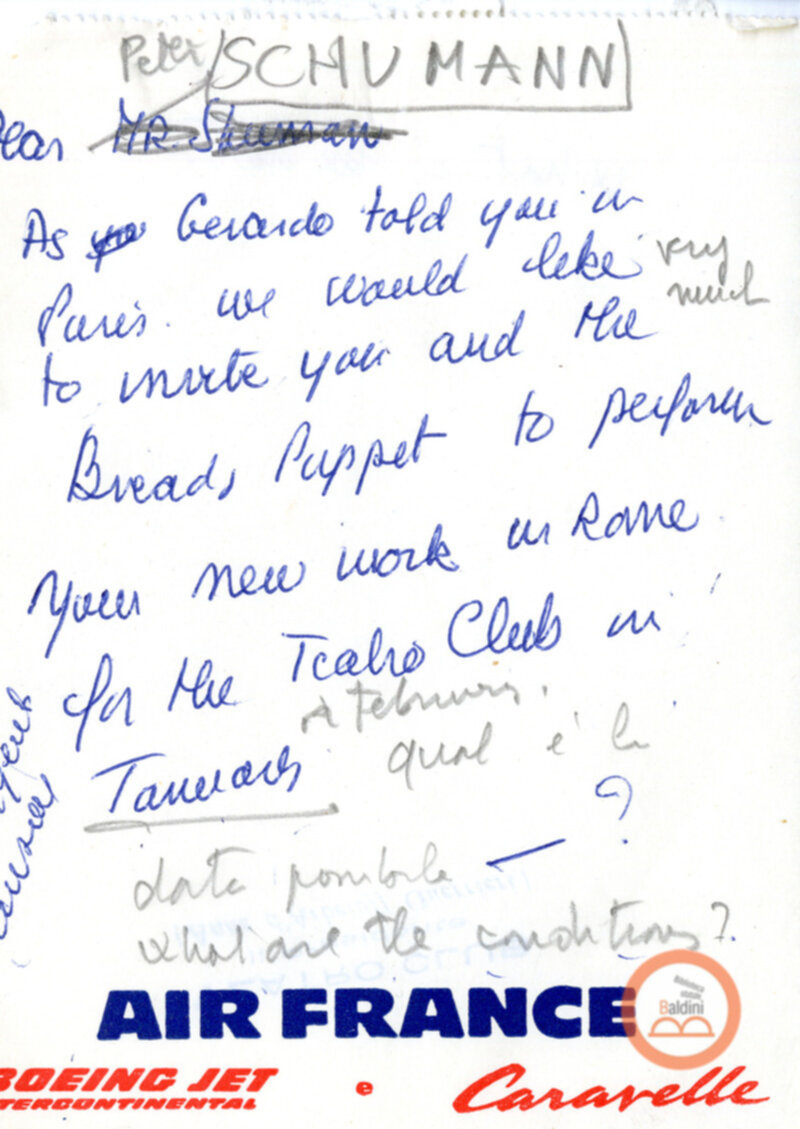 Peter SCHUMANN
Dear Mr. Shuman
As you Gerardo told you in
Paris. we would like very
much
to invite you and the
Breads Puppet to perform
Your new work in Rome
for the Teatro Club in
o February.
January qual è la
?
data possibile —
what are the conditions?
AIR FRANCE
BOEING JET e Caravelle
INTERCONTINENTAL
Biblioteca
statale
Baldini